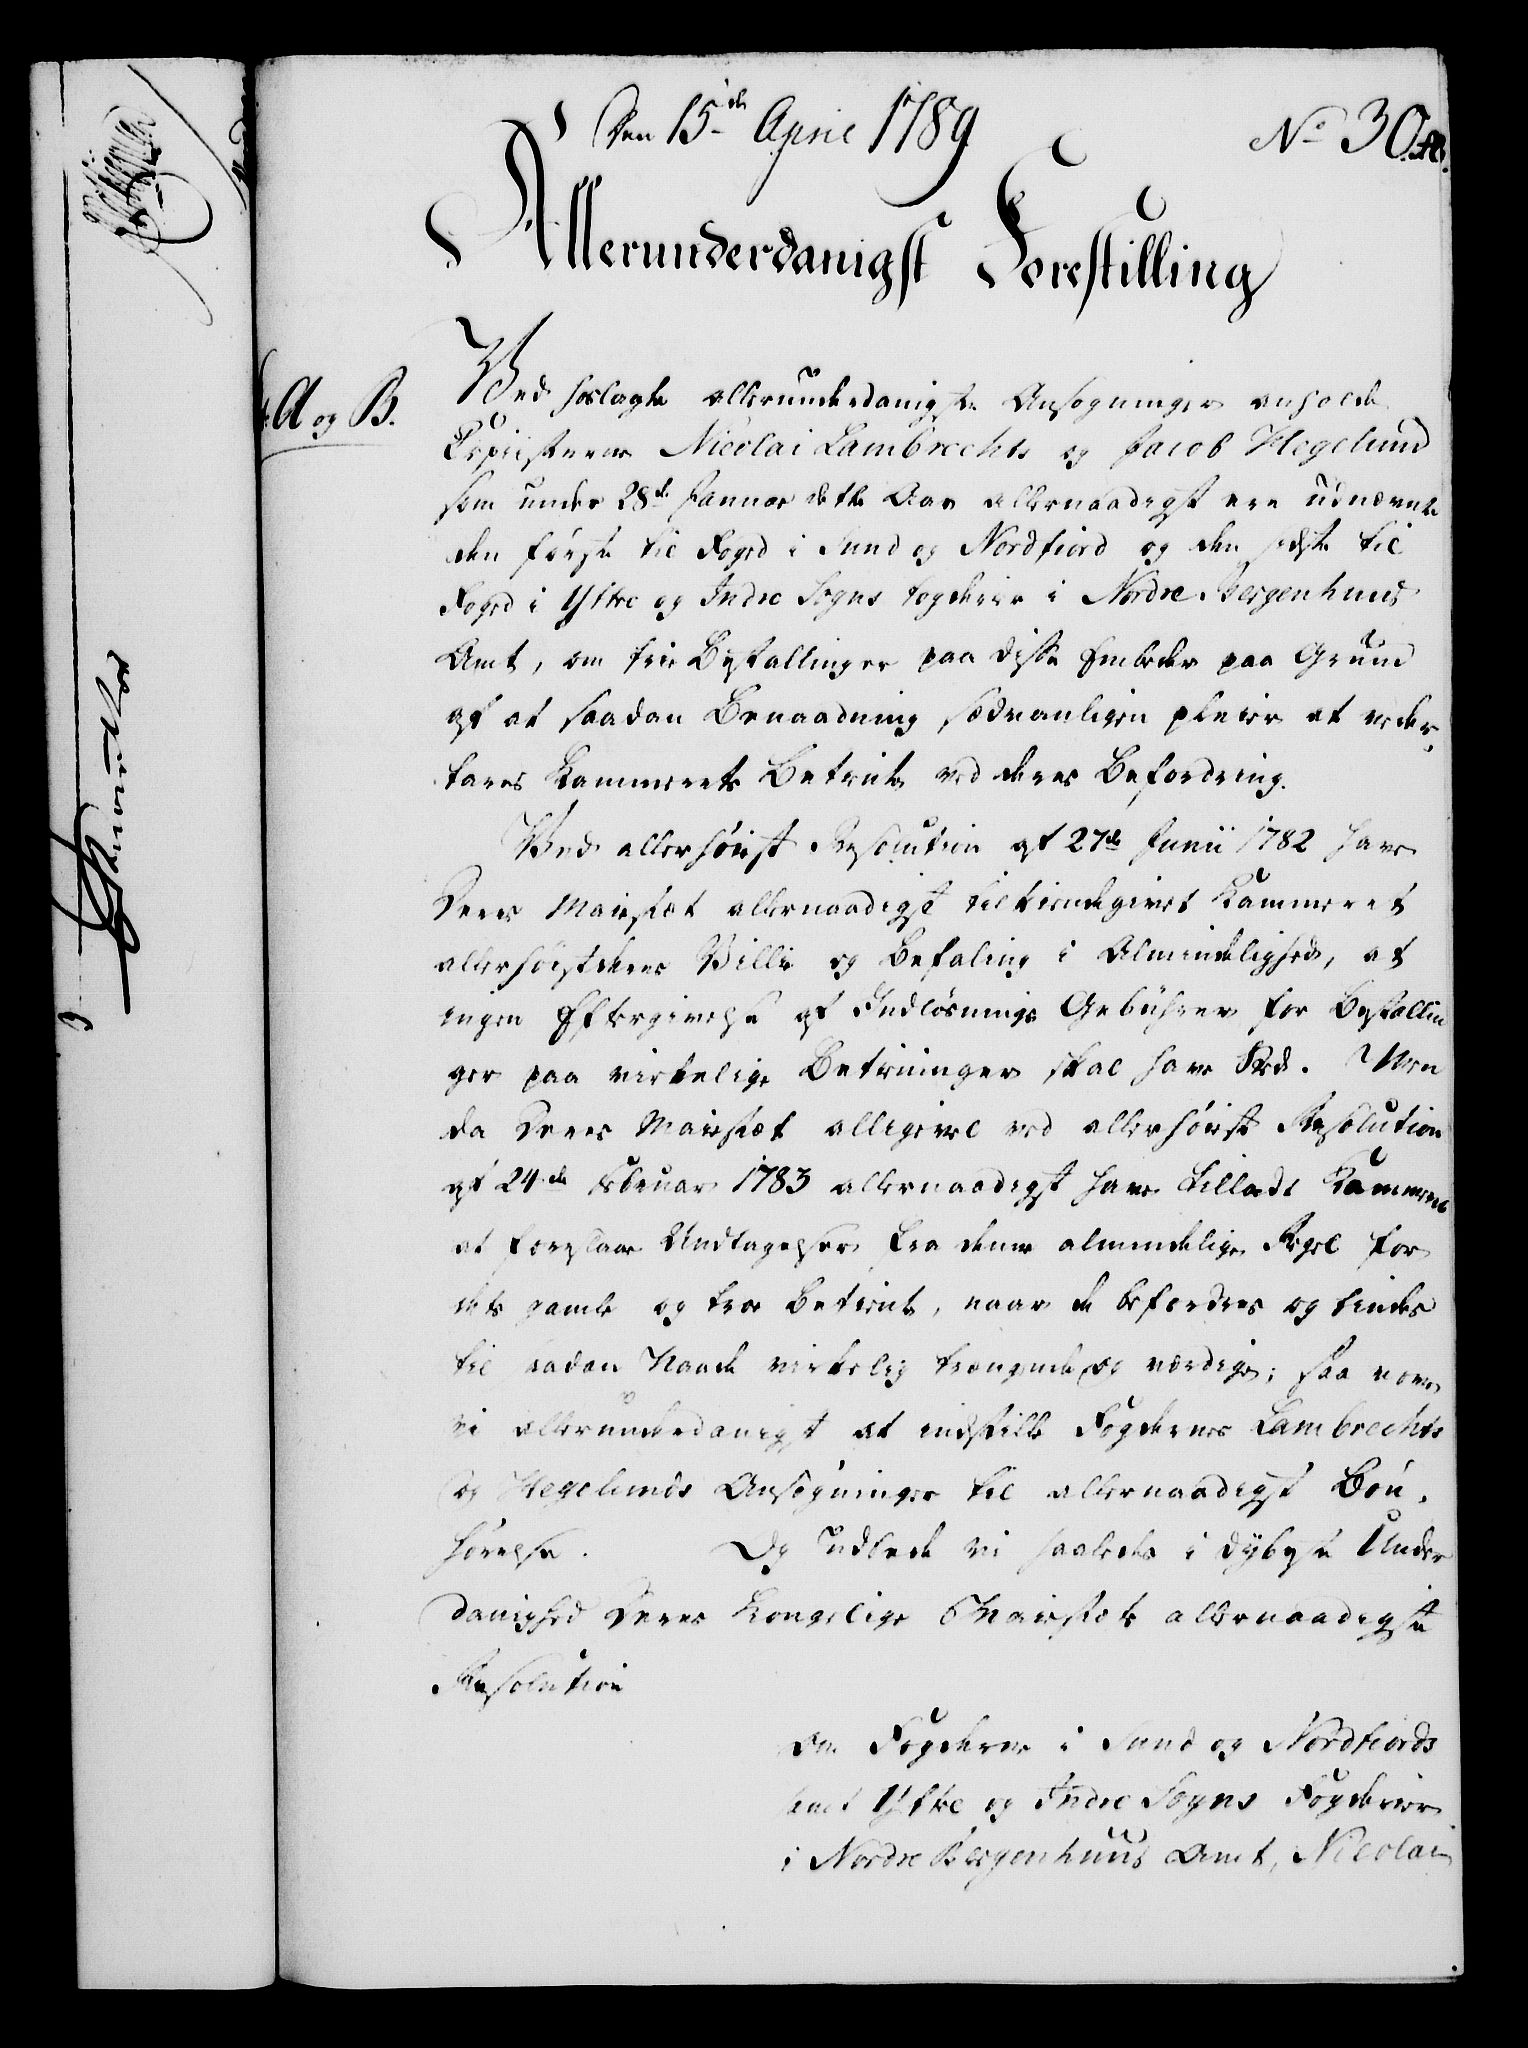 Den 15de April 1789
No 30.
Allerunderdanigst Forestilling
A og B.
Ved hoslagte allerunderdanigste Ansøgninger anholde
Copiisterne Nicolai Lambrechts og Jacob Hegelund
som under 28de Januar dette Aar allernaadigst ere udnævnte
den første til Foged i Sund og Nordfiord og den sidste til
Foged i Yttre og Indre Sogns Fogderier i Nordre Bergenhuus
Amt, om frie Bestallinger paa disse Embeder paa Grund
af at saadan Benaadning sædvanligen pleier at veder-
fares Kammerets Betiente ved deres Befordring.
Ved allerhøiest Resolution af 27de Junii 1782 have
Deres Maiestæt allernaadigst tilkiendegivet Kammeret
allerhøistderes Villie og Befaling i Almindelighed, at
ingen Eftergivelse af Indløsnings Gebührer for Bestallin
ger paa virkelige Betieninger skal have Sted. Men
da Deres Maiestæt alligevel ved allerhøiest Resolution
af 24de Februar 1783 allernaadigst have tilladt Kammeret
at foreslaae Undtagelser fra denne almindelige Regel for
dets gamle og troe Betiente, naar de befordres og findes
til saadan Naade virkelig trængende og værdige; saa vove
vi allerunderdanigst at indstille Fogdernes Lambrechts
og Hegelunds Ansøgninger til allernaadigst Bøn-
hørelse. Og udbede vi saaledes i dybeste Under
danighed Deres Kongelige Maiestæts allernaadigste
Resolution
Om Fogderne i Sund og Nordfiords
samt Yttre og Indre Sogns Fogderier
i Nordre Bergenhuus Amt, Nicolai